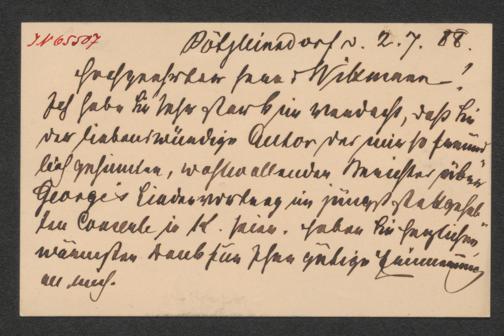 I.N 65507
Pötzleinsdorf d. 2.7. 88.
Hochgeehrter Herr Witzmann!
Ich habe Sie sehr stark im Verdacht, daß Sie
der liebenswürdige Autor des mir so freund
lich gesinnten, wohlwollenden Berichtes über
George's Liedervortrag im jüngst stattgehab
ten Concerte in K. seien. Haben Sie herzlichen
wärmsten Dank für Ihre gütige Erinnerung
an mich.